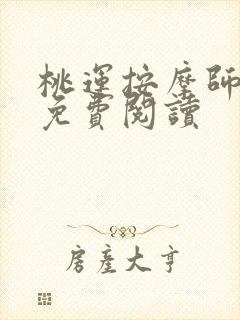 桃運按摩師
免費閱讀
房產大亨